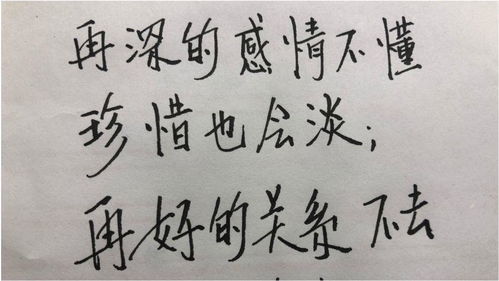 再深的感情不懂
珍惜也会淡；
再好的关系不去